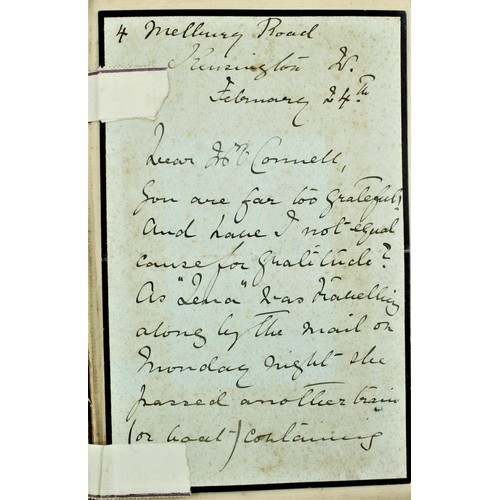 4 Melbury Road
Kensington W.
February 24th
Dear McConnell,
You are far too grateful!
And have I not equal
cause for gratitude?
As "Lena" was travelling
along by the mail on
Monday night she
passed another train
(or boat) containing